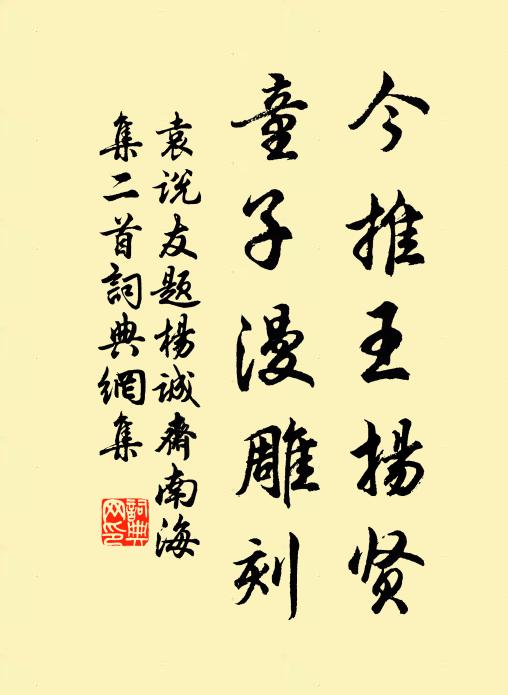 今推王扬贤
童子漫雕刻
袁说友题杨诚斋南海
集二首詞典網集
詞典網印